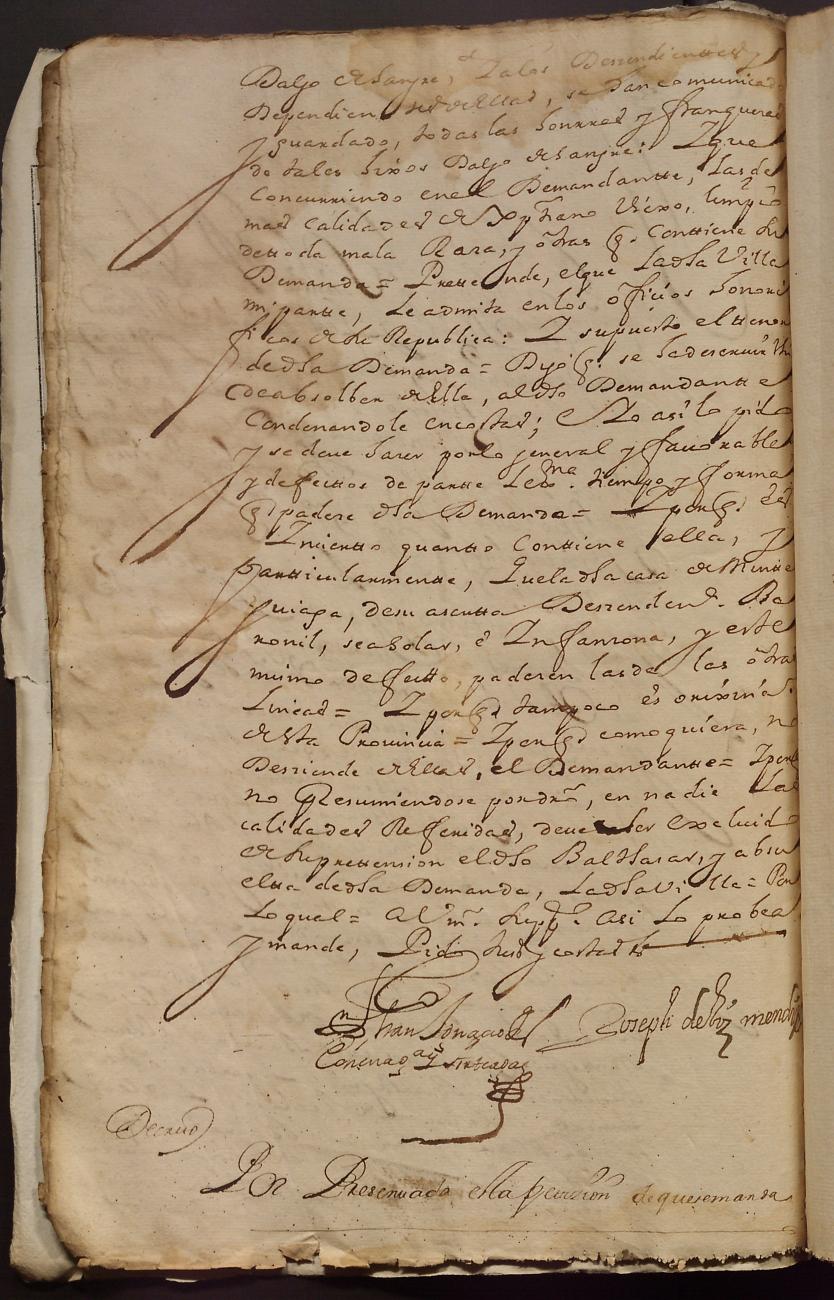 Dalgo de Sangre, Y a los Deszendienttes y
Dependien ttes de ellas, se han comunicado
y guardado, todas las honrras y franquezas
de tales hixos Dalgo de Sangre: Y que
Concurriendo en el Demandantte, las de
mas Calidades de Xptiano Viexo, limpio
de ttoda mala Raza, y ôtras q̃. Conttiene su
Demanda = Prettende, el que La dha Villa
mi partte, le admita en los ôficios honori
ficos de la Republica: Y supuesto el ttenor
de dha Demanda = Digo q̃. se ha de servir Vm
de absolber de ella, al dho Demandantte
Condenandole en costas; Y Asi lo pido
y se deve hazer por lo general y favorable
y defecttos de partte Lexma. tiempo y forma
q̃ padeze dha Demanda = Y por q̃. es
Yncierto quantto Conttiene ella, y
partticularmentte, Que la dha casa de
guiaga, de su ascutta Deszenden.
ronil, sea solar, ê Ynfanzona, y este
mismo defectto, padezen las de las ôtras
Lineas = Y por q̃ tampoco es orixinaª
de estta Provincia = Y por q̃ como quiera, no
Desziende de Ellas, el Demandantte = Y por
no Presumiendose por dro, en nadie Las
calidades Referidas, deve ser excluido
de su prettension el dho Balthasar, y absu
eltta de dha Demanda, La dha Villa = Por
Lo qual = A Vm. Suppco. Asi Lo probea
y mande, Pido Justª y costas &
Joseph de mendi
Decretto
Por Presenttada esta petizion de que se manda